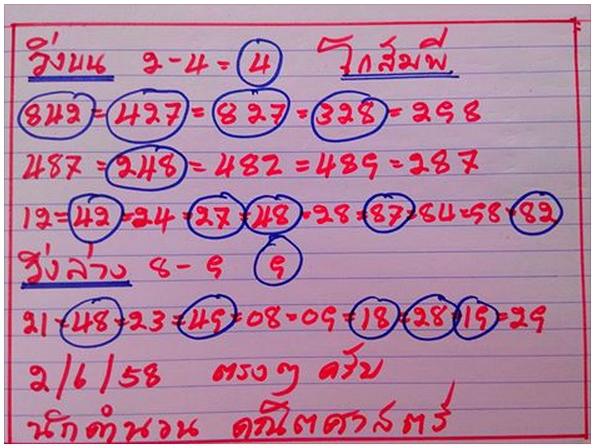 วิ่งบน 2-4=4 โจกสัมพี
842=427=827=328=298
487=248=482=489=287
12=42=24=27=48=28=87=84=98=82
วิ่งล่าง 8-9 9
21=48=23=49=08=09=18=28=19=29
2/6/58 ตรงๆ ครับ
นักคำนวน คณิตศาสตร์